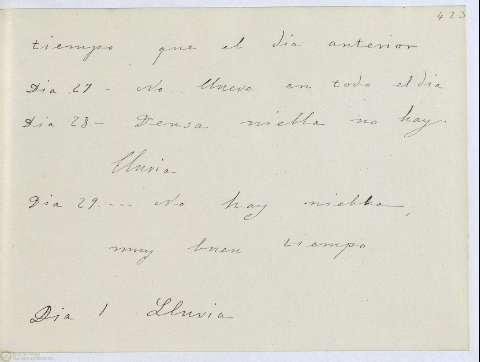 423
tiempo que el dia anterior
Dia 27 - No llueve en todo el dia
Dia 28 - Densa niebla no hay
lluvia
Dia 29 - - - No hay niebla,
muy buen tiempo
Dia 1 Lluvia